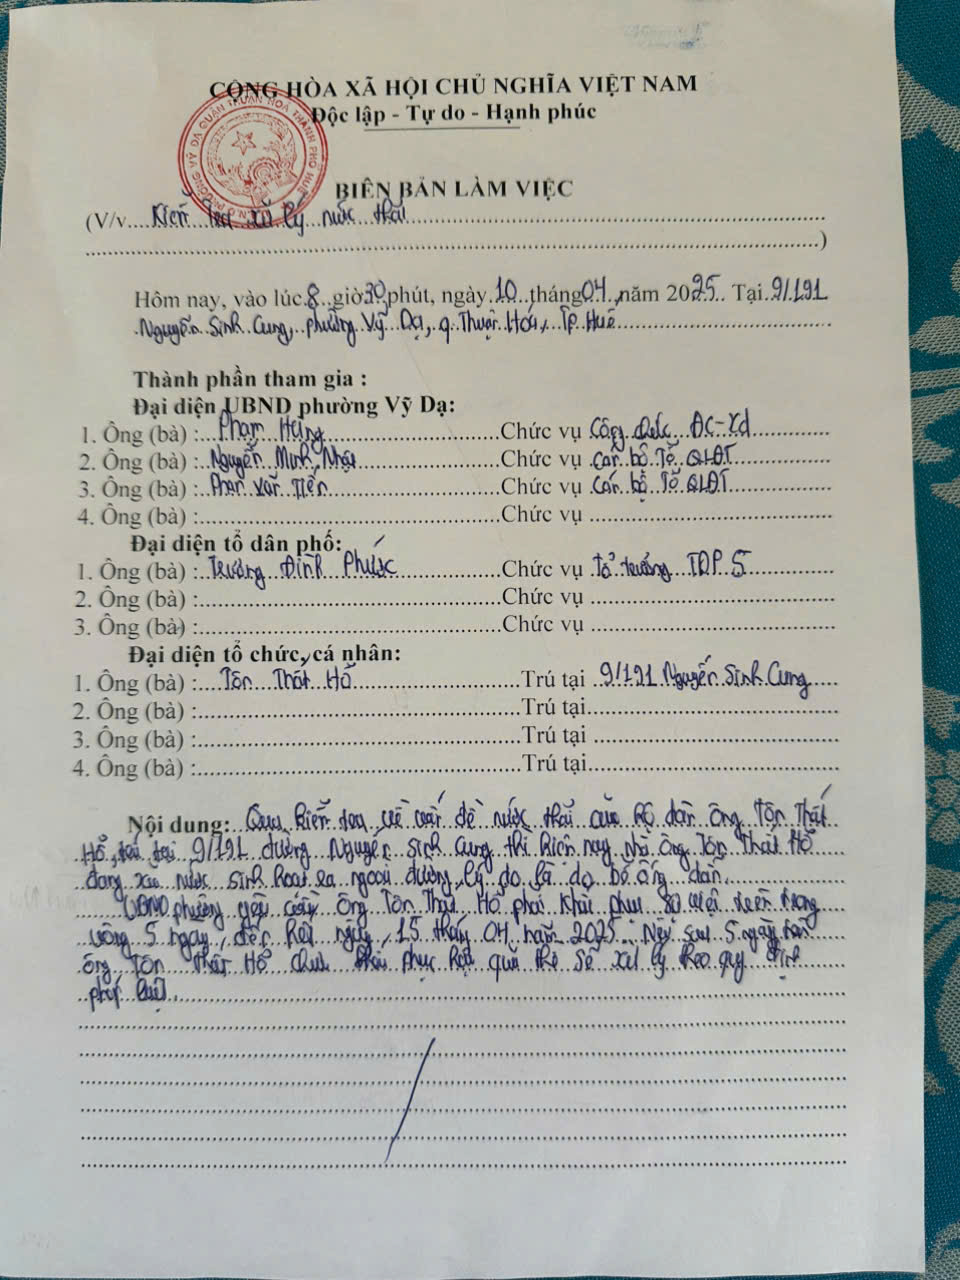 CỘNG HÒA XÃ HỘI CHỦ NGHĨA VIỆT NAM
Độc lập - Tự do - Hạnh phúc
PHƯỜNG VỸ DẠ QUẬN THUẬN HOÁ THÀNH PHỐ HUẾ
BIÊN BẢN LÀM VIỆC
(V/v....Kiểm tra xử lý nước thải........
........)
Hôm nay, vào lúc.8..giờ30.phút, ngày.10..tháng04.,năm 2025.. Tại.9/191
.Nguyễn Sinh Cung, phường Vỹ Dạ, q Thuận Hóa, Tp Huế........
Thành phần tham gia :
Đại diện UBND phường Vỹ Dạ:
1. Ông (bà) :...Phạm Hùng........Chức vụ Công chức ĐC-Xd........
2. Ông (bà) :..Nguyễn Minh Nhật........Chức vụ Cán bộ Tổ QLĐT........
3. Ông (bà) :..Phan Văn Tiến........Chức vụ Cán bộ Tổ QLĐT........
4. Ông (bà) :........Chức vụ ........
Đại diện tổ dân phố:
1. Ông (bà) :..Trương Đình Phước........Chức vụ Tổ trưởng TDP 5........
2. Ông (bà) :........Chức vụ ........
3. Ông (bà) :........Chức vụ ........
Đại diện tổ chức, cá nhân:
1. Ông (bà) :....Tôn Thất Hổ........Trú tại 9/191 Nguyễn Sinh Cung
2. Ông (bà) :........Trú tại........
3. Ông (bà) :........Trú tại ........
4. Ông (bà) :........Trú tại........
Nội dung: Qua kiểm tra về vấn đề nước thải của hộ dân ông Tôn Thất
Hổ, trú tại 9/191 đường Nguyễn Sinh Cung thì hiện nay nhà ông Tôn Thất Hổ
đang xả nước sinh hoạt ra ngoài đường, lý do là do bể ống dẫn.
UBND phường yêu cầu ông Tôn Thất Hổ phải khắc phục sự việc trên trong
vòng 5 ngày, đến hết ngày 15 tháng 04 năm 2025. Nếu sau 5 ngày
ông Tôn Thất Hổ chưa khắc phục hậu quả thì sẽ xử lý theo quy định
pháp luật.